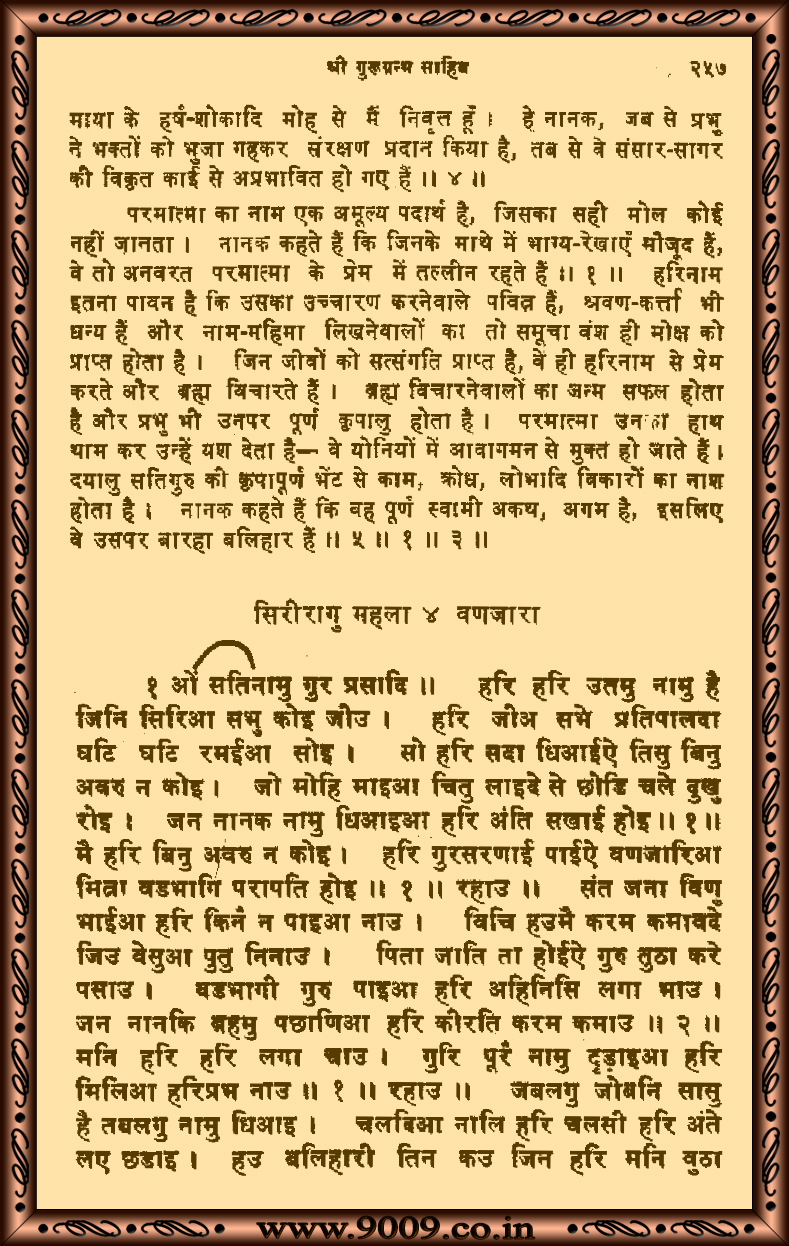 श्री गुरूग्रन्थ साहिब २५७
माया के हर्ष-शोकादि मोह से मैं निवृत्त हूँ । हे नानक, जब से प्रभु
ने भक्तों को भुजा गहकर संरक्षण प्रदान किया है, तब से वे संसार-सागर
की विकृत काई से अप्रभावित हो गए हैं ।। ४ ।।
परमात्मा का नाम एक अमूल्य पदार्थ है, जिसका सही मोल कोई
नहीं जानता । नानक कहते हैं कि जिनके माथे में भाग्य-रेखाएँ मौजूद हैं,
वे तो अनवरत परमात्मा के प्रेम में तल्लीन रहते हैं ।। १ ।। हरिनाम
इतना पावन है कि उसका उच्चारण करनेवाले पवित्र हैं, श्रवण-कर्त्ता भी
धन्य हैं और नाम-महिमा लिखनेवालों का तो समूचा वंश ही मोक्ष को
प्राप्त होता है । जिन जीवों को सत्संगति प्राप्त है, वे ही हरिनाम से प्रेम
करते और ब्रह्म विचारते हैं । ब्रह्म विचारनेवालों का जन्म सफल होता
है और प्रभु भी उनपर पूर्ण कृपालु होता है । परमात्मा उनका हाथ
थाम कर उन्हें यश देता है— वे योनियों में आवागमन से मुक्त हो जाते हैं ।
दयालु सतिगुरु की कृपापूर्ण भेंट से काम, क्रोध, लोभादि विकारों का नाश
होता है । नानक कहते हैं कि वह पूर्ण स्वामी अकथ, अगम है, इसलिए
वे उसपर बारहा बलिहार हैं ।। ५ ।। १ ।। ३ ।।
सिरीरागु महला ४ वणजारा
१ ओं सतिनामु गुर प्रसादि ।। हरि हरि उतमु नामु है
जिनि सिरिआ सभु कोइ जीउ । हरि जीअ सभे प्रतिपालदा
घटि घटि रमईआ सोइ । सो हरि सदा धिआईऐ तिसु बिनु
अवरु न कोइ । जो मोहि माइआ चितु लाइदे से छोडि चले दुखु
रोइ । जन नानक नामु धिआइआ हरि अंति सखाई होइ ।। १ ।।
मै हरि बिनु अवरु न कोइ । हरि गुरसरणाई पाईऐ वणजारिआ
मित्रा वडभागि परापति होइ ।। १ ।। रहाउ ।। संत जना विणु
भाईआ हरि किनै न पाइआ नाउ । विचि हउमै करम कमावदे
जिउ वेसुआ पुतु निनाउ । पिता जाति ता होईऐ गुरु तुठा करे
पसाउ । वडभागी गुरु पाइआ हरि अहिनिसि लगा भाउ ।
जन नानकि ब्रहमु पछाणिआ हरि कीरति करम कमाउ ।। २ ।।
मनि हरि हरि लगा चाउ । गुरि पूरै नामु दृड़ाइआ हरि
मिलिआ हरिप्रभ नाउ ।। १ ।। रहाउ ।। जबलगु जोबनि सासु
है तबलगु नामु धिआइ । चलदिआ नालि हरि चलसी हरि अंते
लए छडाइ । हउ बलिहारी तिन कउ जिन हरि मनि वुठा
www.9009.co.in